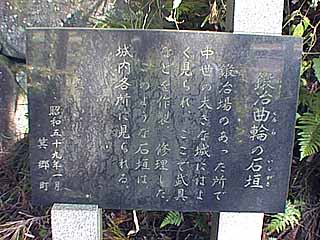 鍛冶曲輪の石垣
くるわ
いしがき
鍛冶場のあった所で
中世の大きな城にはよ
く見られ、ここで武具
などを作製、修理した
このような石垣は
城内各所に見られる
昭和五十九年一月
箕郷町